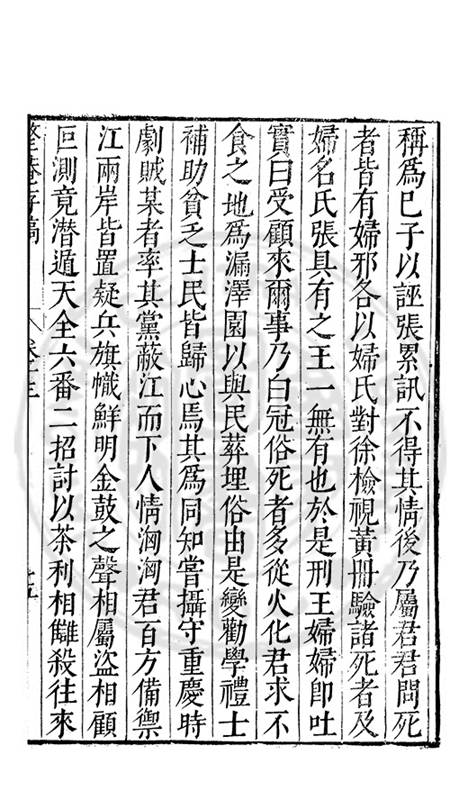 稱爲已子以誣張累訊不得其情後乃屬君君問死
者皆有婦邪各以婦氏對徐檢視黃冊驗諸死者及
婦名氏張具有之王一無有也於是刑王婦婦卽吐
實曰受顧來爾事乃白冠俗死者多從火化君求不
食之地爲漏澤園以與民葬埋俗由是變勸學禮士
補助貧乏士民皆歸心焉其爲同知嘗攝守重慶時
劇賊某者率其黨蔽江而下人情洶洶君百方備禦
江兩岸皆置疑兵旗幟鮮明金鼓之聲相屬盜相顧
叵測竟潜遁天全六番二招討以茶利相讎殺往來
整菴存稿
卷十三